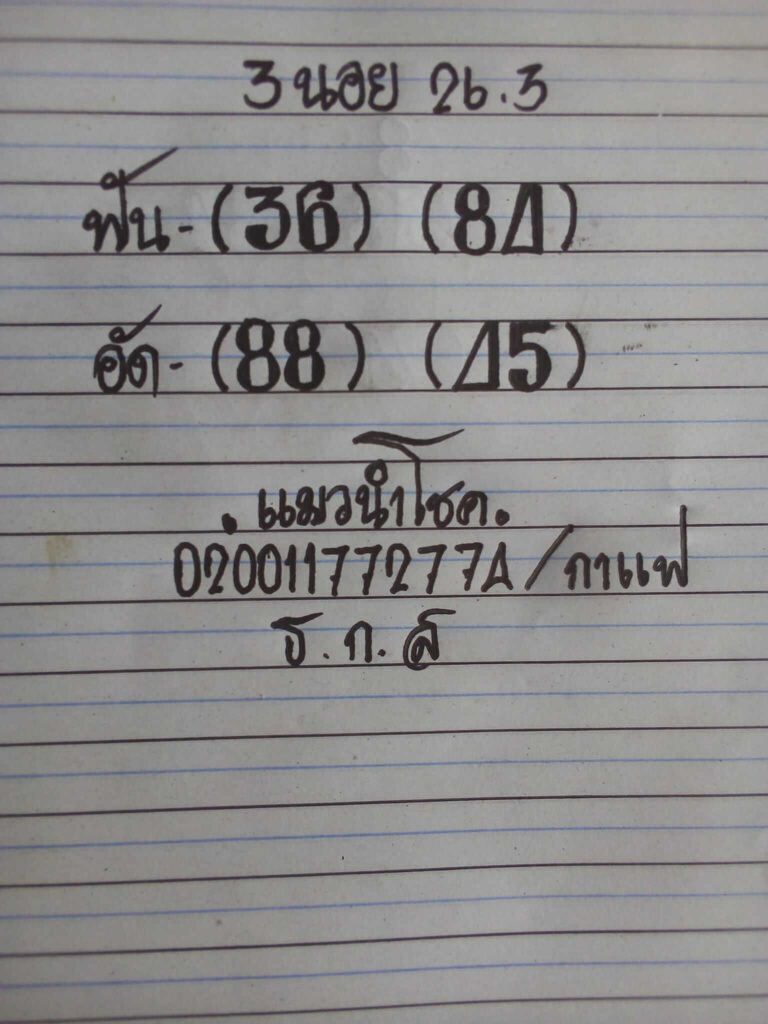 3 นอย 26.3
ฟัน - (36) (84)
อัด - (88) (45)
. แมวนำโชค.
020011772774/กาแฟ
ธ.ก.ส